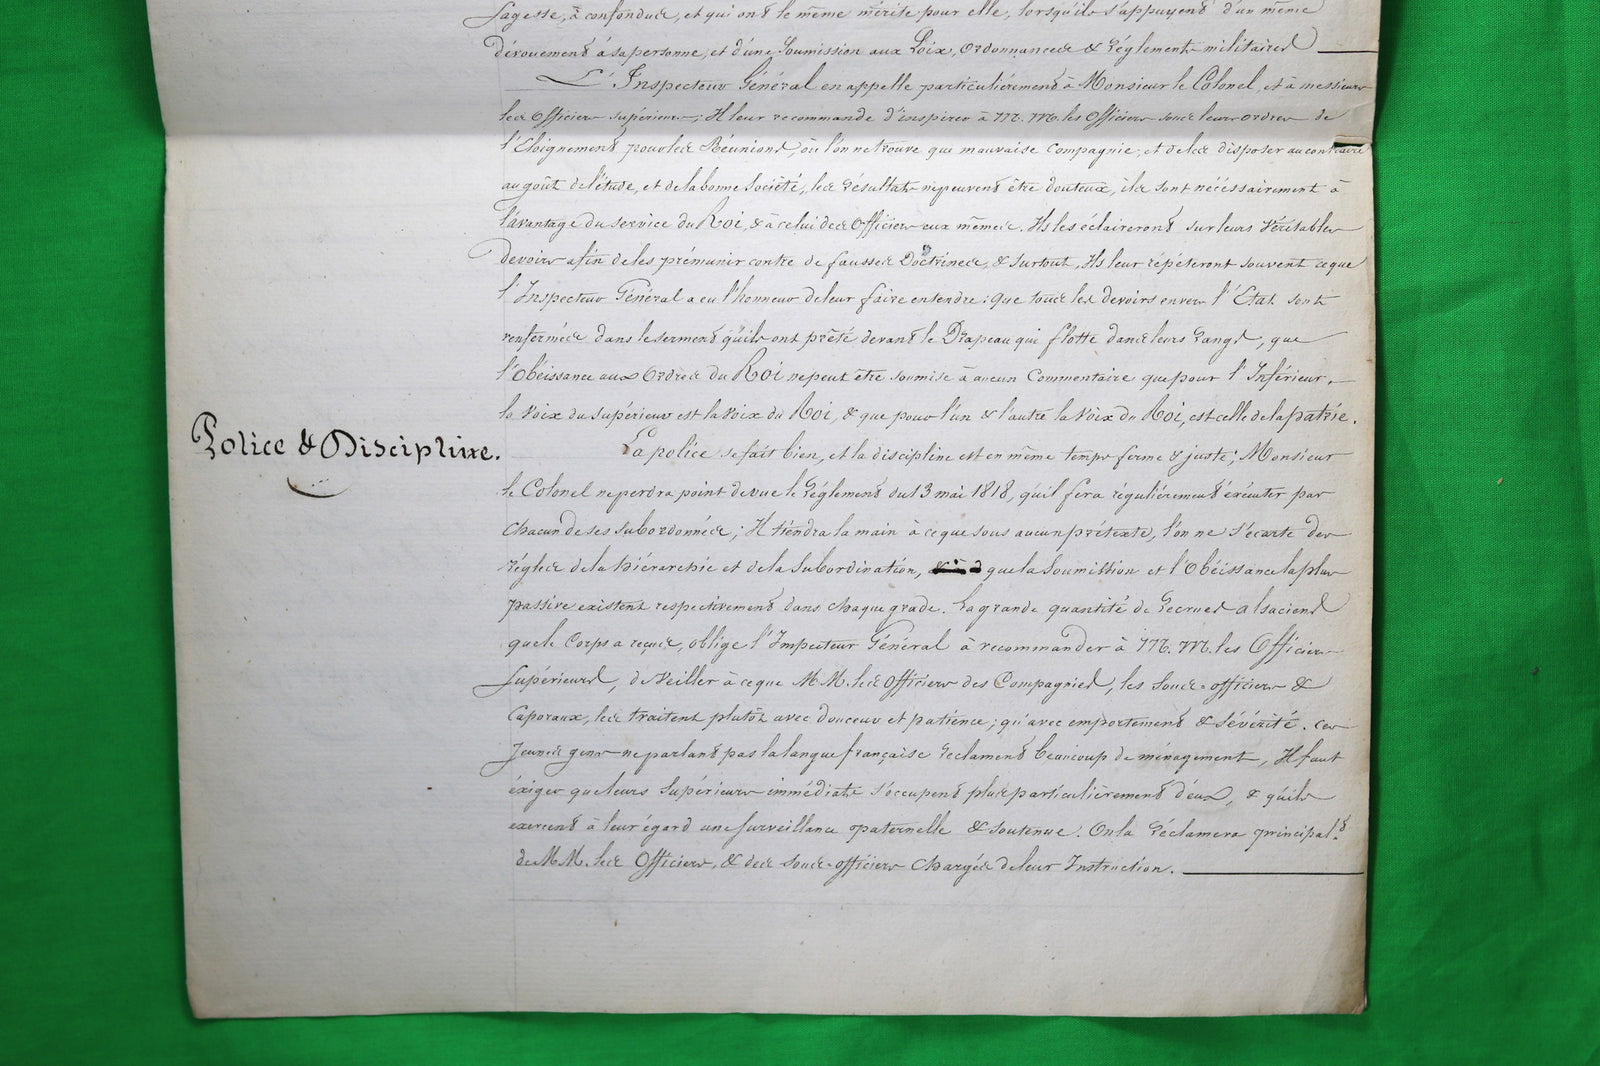 sagesse, à confondue, et qui ont le même mérite pour elle, lorsqu'ils s'appuyent d'un même
dévouement à sa personne, et d'une soumission aux Loix, Ordonnances & Réglements militaires
L'Inspecteur Général en appelle particulièrement à Monsieur le Colonel, et à messieurs
les Officiers supérieurs; Il leur recommande d'inspirer à M. M. les Officiers sous leurs ordres de
l'Eloignement pour les Réunions, où l'on ne trouve que mauvaise Compagnie, et de les disposer au contraire
au goût de l'étude, et de la bonne Société, les résultats ne peuvent être douteux, ils sont nécéssairement à
l'avantage du service du Roi, & à celui des Officiers eux mêmes. Ils les éclaireront sur leurs véritables
devoirs afin de les prémunir contre de fausses Doctrines, & surtout, Ils leur répéteront souvent ce que
l'Inspecteur Général a eu l'honneur de leur faire entendre: que tous les devoirs envers l'Etat sont
renfermés dans le serment qu'ils ont prêté devant le Drapeau qui flotte dans leurs rangs, que
l'Obéissance aux Ordres du Roi ne peut être soumise à aucun Commentaire que pour l'Inférieur,
la voix du supérieur est la voix du Roi, & que pour l'un & l'autre la voix du Roi, est celle de la patrie.
Police & Discipline.
La police se fait bien, et la discipline est en même temps ferme & juste; Monsieur
le Colonel ne perdra point de vue le Réglement du 13 mai 1818, qu'il fera régulièrement éxécuter par
chacun de ses subordonnés; Il tiendra la main à ce que sous aucun prétexte, l'on ne s'écarte des
règles de la hiérarchie et de la subordination, que la soumission et l'Obéissance la plus
passive existent respectivement dans chaque grade. La grande quantité de recrues alsaciens
que le Corps a reçus, oblige l'Inspecteur Général à recommander à M. M. les Officiers
Supérieurs, de veiller à ce que M M. les Officiers des Compagnies, les sous-officiers &
Caporaux, les traitent plutôt avec douceur et patience; qu'avec emportement & sévérité. Ces
jeunes gens ne parlant pas la langue française réclament beaucoup de ménagement, Il faut
éxiger que leurs supérieurs immédiats s'occupent plus particulièrement d'eux, & qu'ils
exercent à leur égard une surveillance paternelle & soutenue. On la réclamera principal.t
de M M. les Officiers, & des sous-officiers chargés de leur Instruction.